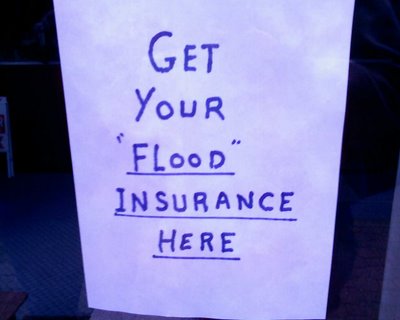 GET
YOUR
"FLooD"
INSURANCE
HERE